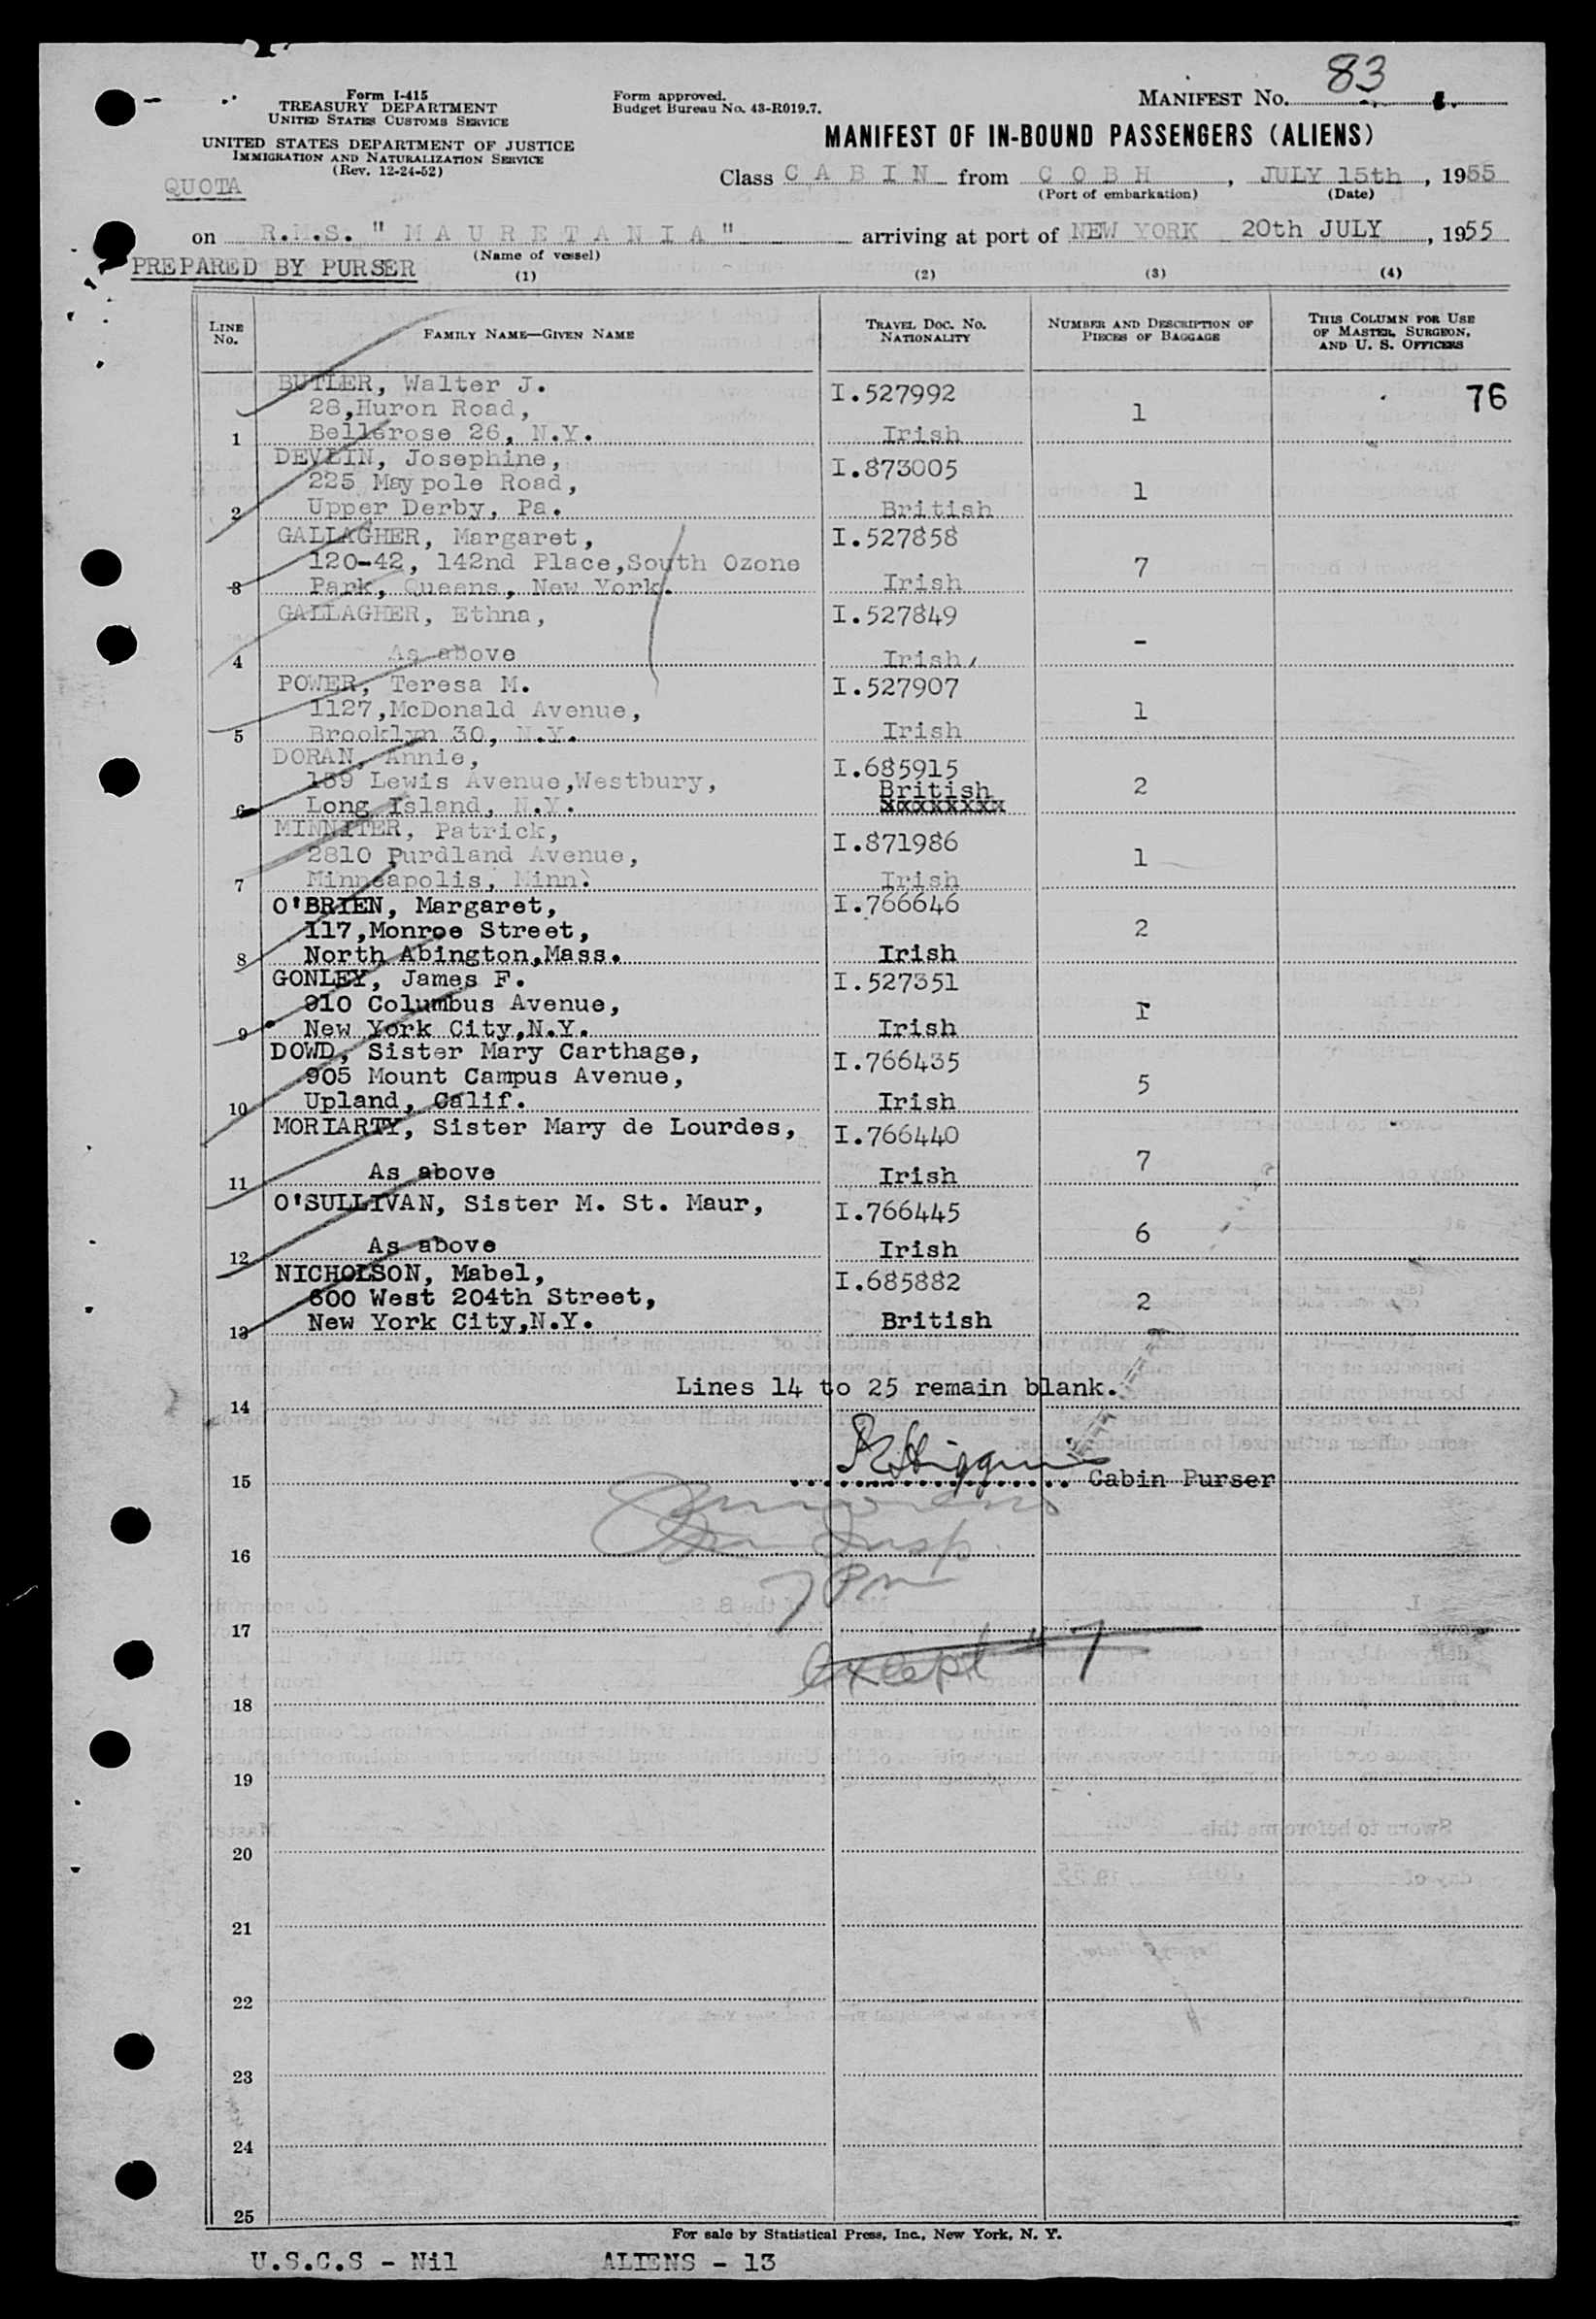 83
Form I-415
TREASURY DEPARTMENT
UNITED STATES CUSTOMS SERVICE
Form approved.
Budget Bureau No. 43-R019.7.
MANIFEST NO.
UNITED STATES DEPARTMENT OF JUSTICE
IMMIGRATION AND NATURALIZATION SERVICE
(Rev. 12-24-52)
MANIFEST OF IN-BOUND PASSENGERS (ALIENS)
QUOTA
Class C A B I N from C O B H, JULY 15th, 1955
(Port of embarkation) (Date)
on R.M.S. " M A U R E T A N I A " arriving at port of NEW YORK 20th JULY, 1955
(Name of vessel)
PREPARED BY PURSER
(1) (2) (3) (4)
LINE NO.
FAMILY NAME—GIVEN NAME
TRAVEL DOC. NO. NATIONALITY
NUMBER AND DESCRIPTION OF PIECES OF BAGGAGE
THIS COLUMN FOR USE OF MASTER, SURGEON, AND U. S. OFFICERS
76
BUTLER, Walter J. I.527992
28,Huron Road, 1
1 Bellerose 26, N.Y. Irish
DEVLIN, Josephine, I.873005
225 Maypole Road, 1
2 Upper Derby, Pa. British
GALLAGHER, Margaret, I.527858
120-42, 142nd Place,South Ozone 7
3 Park, Queens, New York. Irish
GALLAGHER, Ethna, I.527849
-
4 As above Irish
POWER, Teresa M. I.527907
1127,McDonald Avenue, 1
5 Brooklyn 30, N.Y. Irish
DORAN, Annie, I.685915
159 Lewis Avenue,Westbury, British 2
6 Long Island, N.Y. xxxxxxxx
MINNITER, Patrick, I.871986
2810 Purdland Avenue, 1
7 Minneapolis, Minn. Irish
O'BRIEN, Margaret, I.766646
117,Monroe Street, 2
8 North Abington,Mass. Irish
GONLEY, James F. I.527351
910 Columbus Avenue, 1
9 New York City,N.Y. Irish
DOWD, Sister Mary Carthage, I.766435
905 Mount Campus Avenue, 5
10 Upland, Calif. Irish
MORIARTY, Sister Mary de Lourdes, I.766440
7
11 As above Irish
O'SULLIVAN, Sister M. St. Maur, I.766445
6
12 As above Irish
NICHOLSON, Mabel, I.685882
600 West 204th Street, 2
13 New York City,N.Y. British
Lines 14 to 25 remain blank.
14
15 Cabin Purser
16 Insp.
7 PM
17
except # 7
18
19
20
21
22
23
24
25
For sale by Statistical Press, Inc., New York, N. Y.
U.S.C.S - Nil ALIENS - 13